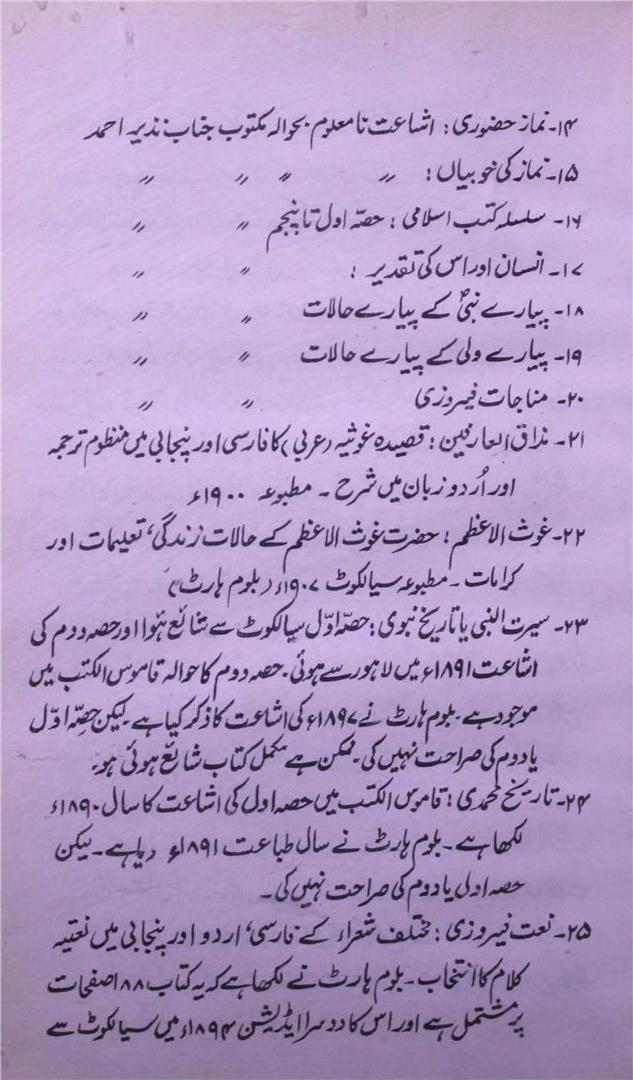 ۱۴۔ نماز حضوری : اشاعت نامعلوم بحوالہ مکتوب جناب نذیر احمد
۱۵۔ نماز کی خوبیاں : 〃 〃 〃 〃
۱۶۔ سلسلہ کتب اسلامی : حصّہ اول تا پنجم 〃 〃
۱۷۔ انسان اور اس کی تقدیر : 〃 〃
۱۸۔ پیارے نبیؐ کے پیارے حالات 〃 〃
۱۹۔ پیارے ولی کے پیارے حالات 〃 〃
۲۰۔ مناجات فیروزی 〃 〃
۲۱۔ مذاق العارفین : قصیدہ غوثیہ (عربی) کا فارسی اور پنجابی میں منظوم ترجمہ
اور اُردو زبان میں شرح ۔ مطبوعہ ۱۹۰۰ء
۲۲۔ غوث الاعظم : حضرت غوث الاعظم کے حالات زندگی، تعلیمات اور
کرامات ۔ مطبوعہ سیالکوٹ ۱۹۰۷ء (بلوم ہارٹ)
۲۳۔ سیرت النبی یا تاریخ نبوی : حصّہ اوّل سیالکوٹ سے شائع ہُوا اور حصہ دوم کی
اشاعت ۱۸۹۱ء میں لاہور سے ہوئی۔ حصہ دوم کا حوالہ قاموس الکتب میں
موجود ہے۔ بلوم ہارٹ نے ۱۸۹۷ء کی اشاعت کا ذکر کیا ہے۔ لیکن حصّہ اوّل
یا دوم کی صراحت نہیں کی۔ ممکن ہے مکمل کتاب شائع ہوئی ہو۔
۲۴۔ تاریخ محمدی : قاموس الکتب میں حصہ اول کی اشاعت کا سال ۱۸۹۰ء
لکھا ہے۔ بلوم ہارٹ نے سال طباعت ۱۸۹۱ء دیا ہے۔ لیکن
حصہ اول یا دوم کی صراحت نہیں کی۔
۲۵۔ نعت فیروزی : مختلف شعراء کے فارسی، اردو اور پنجابی میں نعتیہ
کلام کا انتخاب ۔ بلوم ہارٹ نے لکھا ہے کہ یہ کتاب ۱۸۸ صفحات
پر مشتمل ہے اور اس کا دوسرا ایڈیشن ۱۸۹۴ء میں سیالکوٹ سے